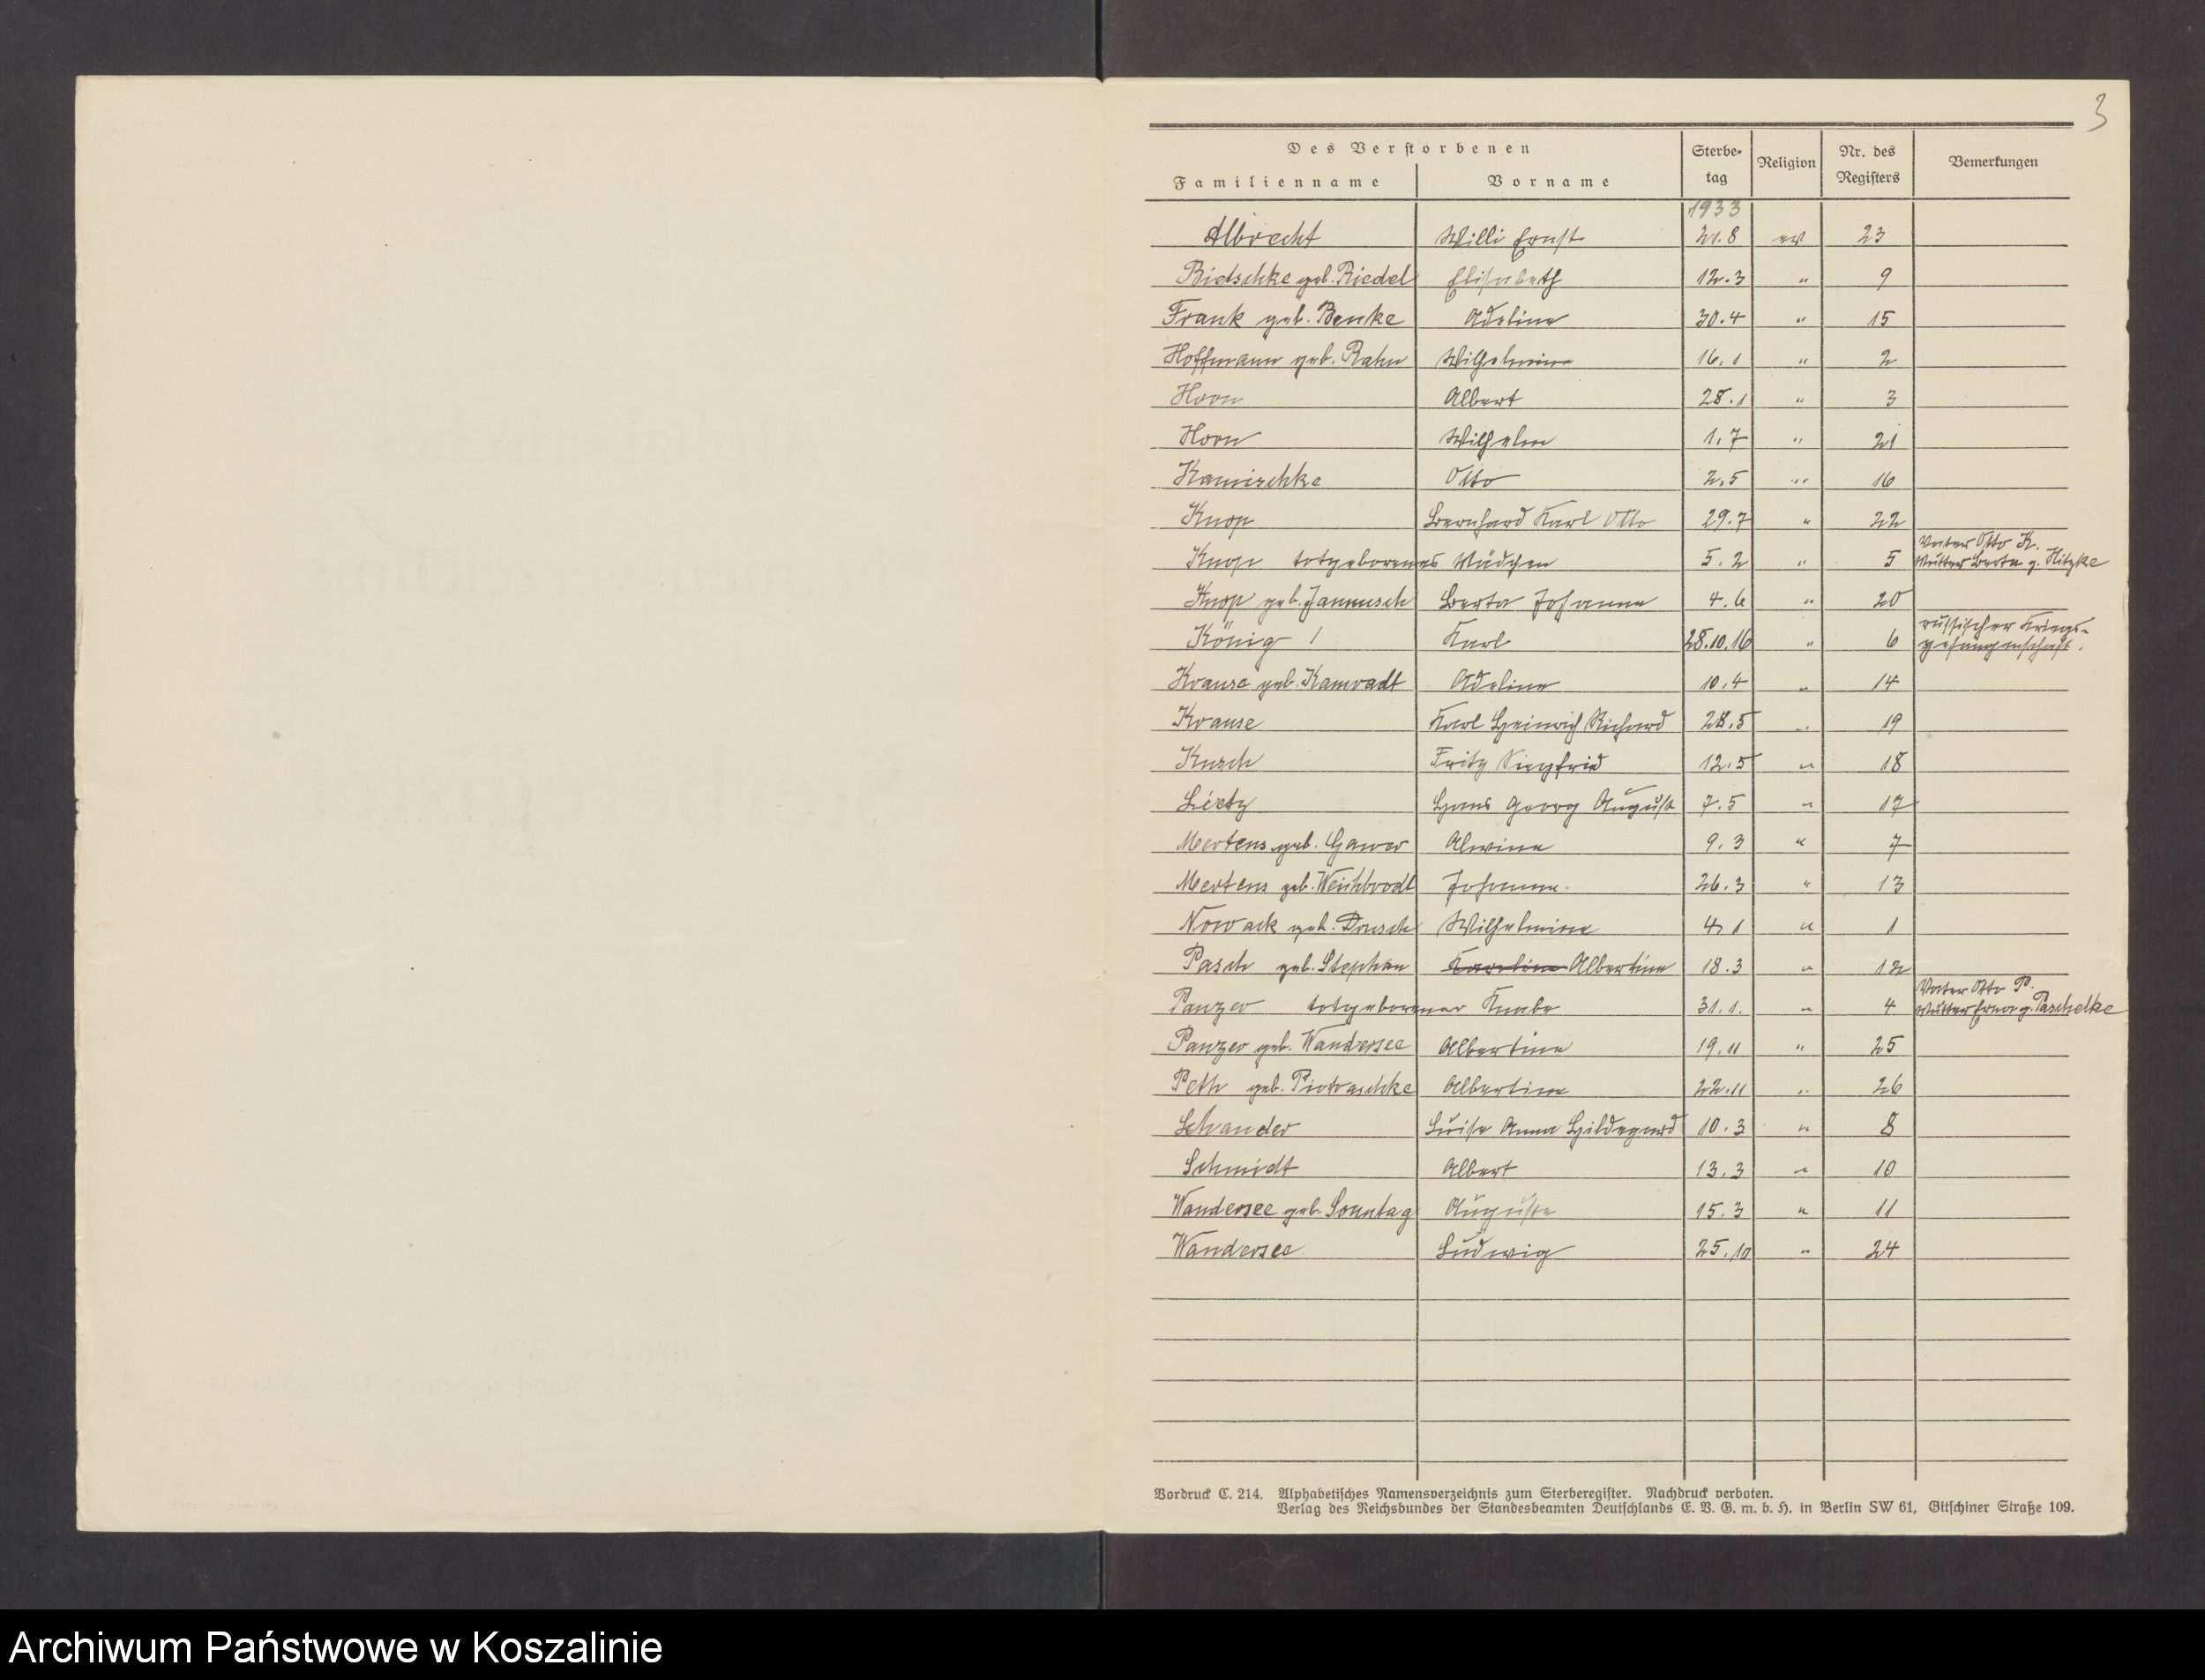 3
Des Verstorbenen
Sterbe-
tag
Religion
Nr. des
Registers
Bemerkungen
Familienname Vorname
1933
Albrecht Willi Ernst 21.8 ev 23
geb. Riedel Elisabeth 12.3 " 9
Frank geb. Benke Adeline 30.4 " 15
Hoffmann geb. Rahn Wilhelmine 16.1 " 2
Horn Albert 28.1 " 3
Horn Wilhelm 1.7 " 21
Kamischke Otto 2.5 " 16
Knop Bernhard Karl Otto 29.7 " 22
Vater Otto K.
Knop totgeborenes Mädchen 5.2 " 5 Mutter Berta g. Hitzke
Knop geb. Jannusch Berta Johanna 4.6 " 20
russischer Kriegs-
König Karl 28.10.16 " 6 gefangenschaft.
Krause geb. Kamradt Adeline 10.4 " 14
Krause Karl Heinrich Richard 28.5 " 19
Kusch Fritz Siegfried 12.5 " 18
Lietz Hans Georg August 7.5 " 17
Mertens geb. Alwine 9.3 " 7
Mertens geb. Weichbrodt Johanna 26.3 " 13
Nowack geb. Wilhelmine 4.1 " 1
Pasch geb. Stephan Karoline Albertine 18.3 " 12
Vater Otto P.
Panzer totgeborener Knabe 31.1. " 4 Mutter Erna g. Paschelke
Panzer geb. Wandersee Albertine 19.11 " 25
Peth geb. Piotraschke Albertine 22.11 " 26
Schander Luise Anna Hildegard 10.3 " 8
Schmidt Albert 13.3 " 10
Wandersee geb. Sonntag Auguste 15.3 " 11
Wandersee Ludwig 25.10 " 24
Vordruck C. 214. Alphabetisches Namensverzeichnis zum Sterberegister. Nachdruck verboten.
Verlag des Reichsbundes der Standesbeamten Deutschlands E. V. G. m. b. H. in Berlin SW 61, Gitschiner Straße 109.
Archiwum Państwowe w Koszalinie